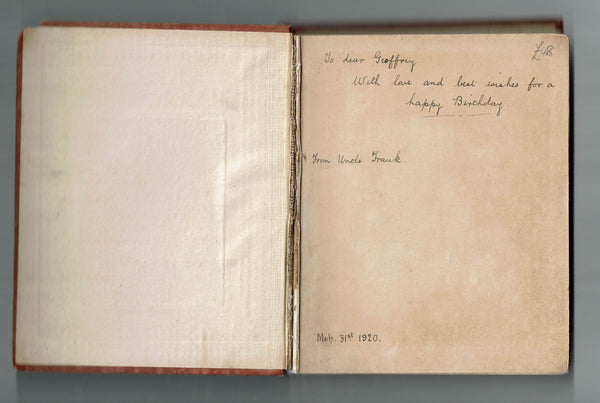 £48
To dear Geoffrey
With love and best wishes for a
happy Birthday.
From Uncle Frank.
Mch. 31st 1920.